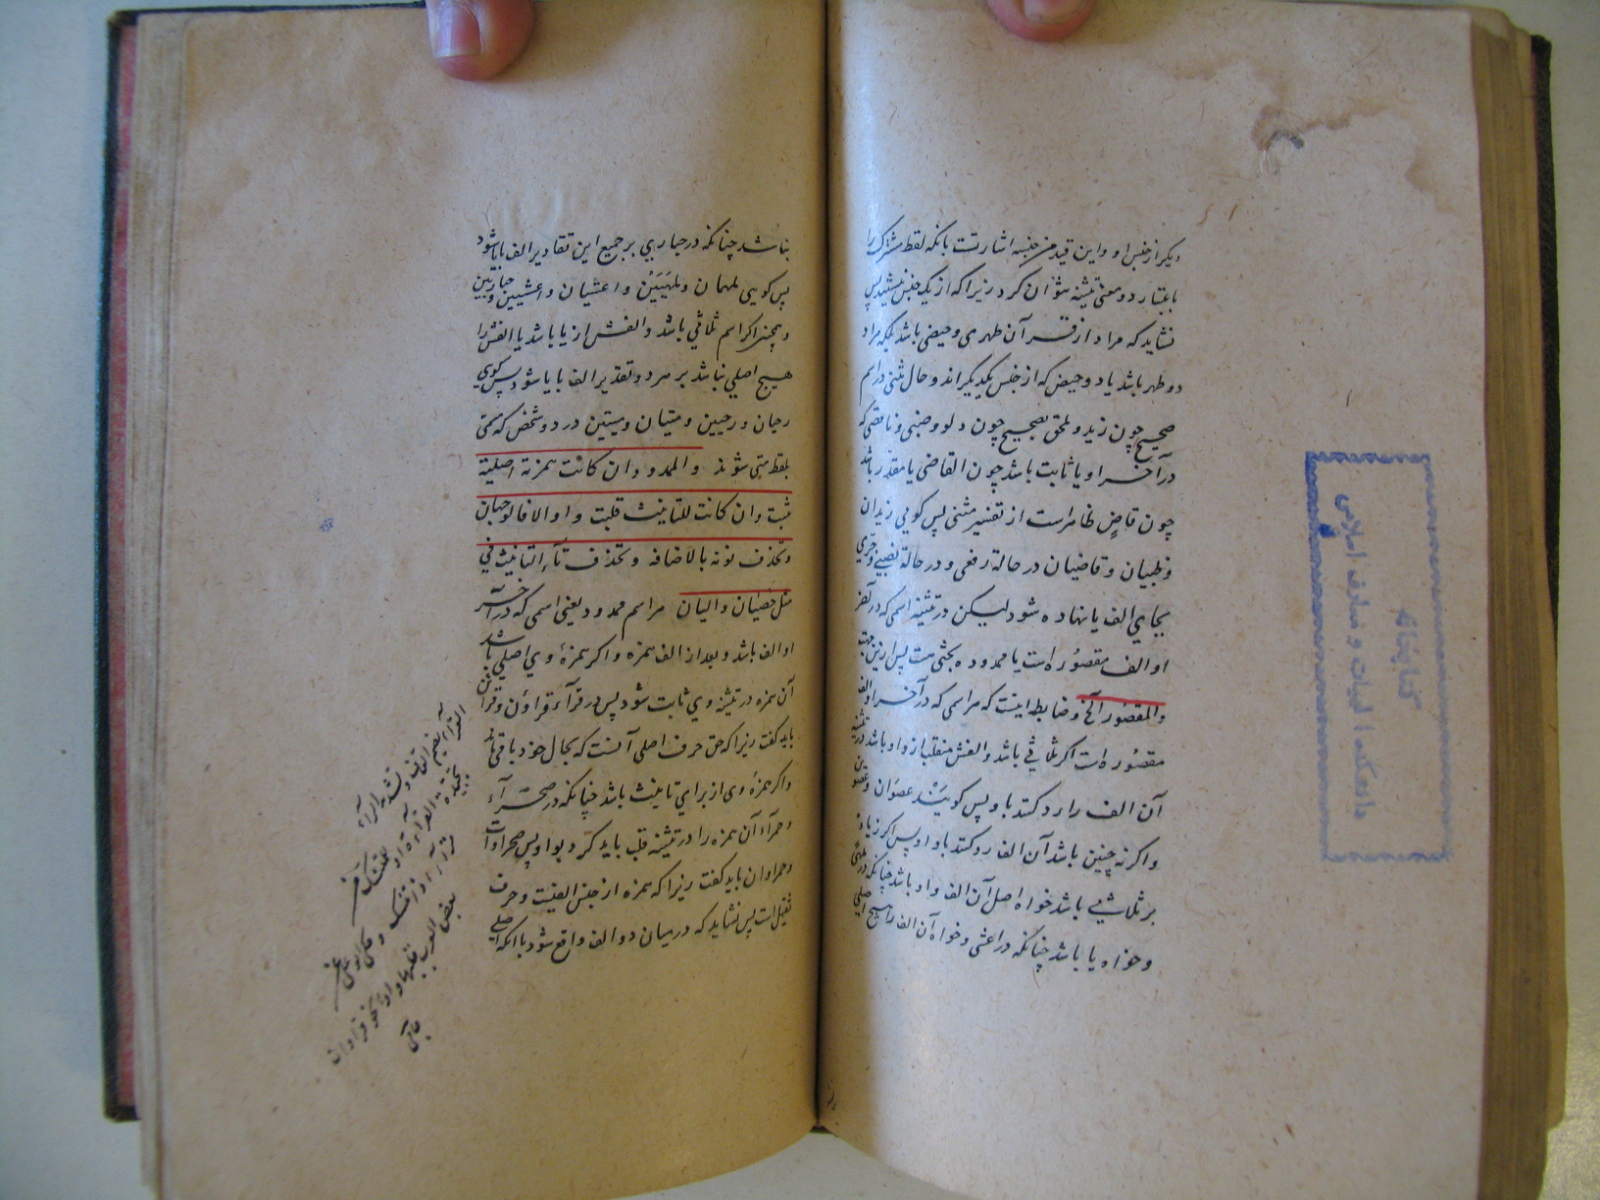 دیگر از جنس او و این قید من جنسه اشارتست بانکه لفظ مشترک را
باعتبار دو معنی تثنیه نتوان کرد زیرا که از یک جنس نیستند پس
نشاید که مراد از قرآن طهری و حیضی باشد بلکه مراد
دو طهر باشد یا دو حیض که از جنس یکدیگراند و حال مثنی در اسم
صحیح چون زید و ملحق بصحیح چون دلو و ظبی و ناقصی که
در آخر او یا ثابت باشد چون القاضی یا مقدر باشد
چون قاضٍ ظاهراست از تفسیر مثنی پس کویی زیدان
و ظبیان و قاضیان در حالة رفعی و در حالة نصبی و جری
بجای الف یا نهاده شود لیکن در تثنیه اسمی که در آخر
او الف مقصوره است یا ممدوده بحثی هست پس ازین جهت
والمقصور الخ و ضابط اینست که هر اسمی که در آخر او الف
مقصوره است اکر ثلاثی باشد و الفش منقلب از واو باشد در تثنیه
آن الف را رد کنند با واو پس کویند عصوان و عصوین
واکر نه چنین باشد آن الف رد کنند با واو پس اکر زیاده
بر ثلاثی باشد خواه اصل آن الف واو باشد چنانکه در ملهی
و خواه یا باشد چنانکه در اعشی و خواه آن الف را هیچ اصلی
نباشد چنانکه در حباری بر جمیع این تقادیر الف با یا شود
پس کویی ملهیان و ملهیین و اعشیان و اعشیین و حباریین
و همچنین اکر اسم ثلاثی باشد و الفش از یا باشد یا الفش را
هیچ اصلی نباشد بر هر دو تقدیر الف با یا شود پس کویی
رحیان و رحیین و متیان و متیین در دو شخص که مسمی
بلفظ متی شوند والممدود ان کانت همزته اصلیة
ثبتت وان کانت للتانیث قلبت واوا والا فالوجهان
وتحذف نونه بالاضافة وتحذف تآء التانیث فی
مثل خصیان والیان هر اسم ممدود یعنی اسمی که در آخر
او الف باشد و بعد از الف همزه و اکر همزهٔ وی اصلی باشد
آن همزه در تثنیه وی ثابت شود پس در قرآء قراؤن و قرائین
باید کفت زیرا که حق حرف اصلی آنست که بحال خود باقی ماند
واکر همزهٔ وی از برای تانیث باشد چنانکه در صحرآء
و حمرآء آن همزه را در تثنیه قلب باید کرد بواو پس صحراوان
و حمراوان باید کفت زیرا که همزه از جنس الفست و حرف
ثقیل است پس نشاید که درمیان دو الف واقع شود با آنکه اصلی
القرآء بضم القاف وتشدید الرآء
للمتنسک
وحکی ابو علی عن
بعض العرب قلبها واوا نحو قراوان
جامی
کتابخانه
دانشکده الهیات و معارف اسلامی